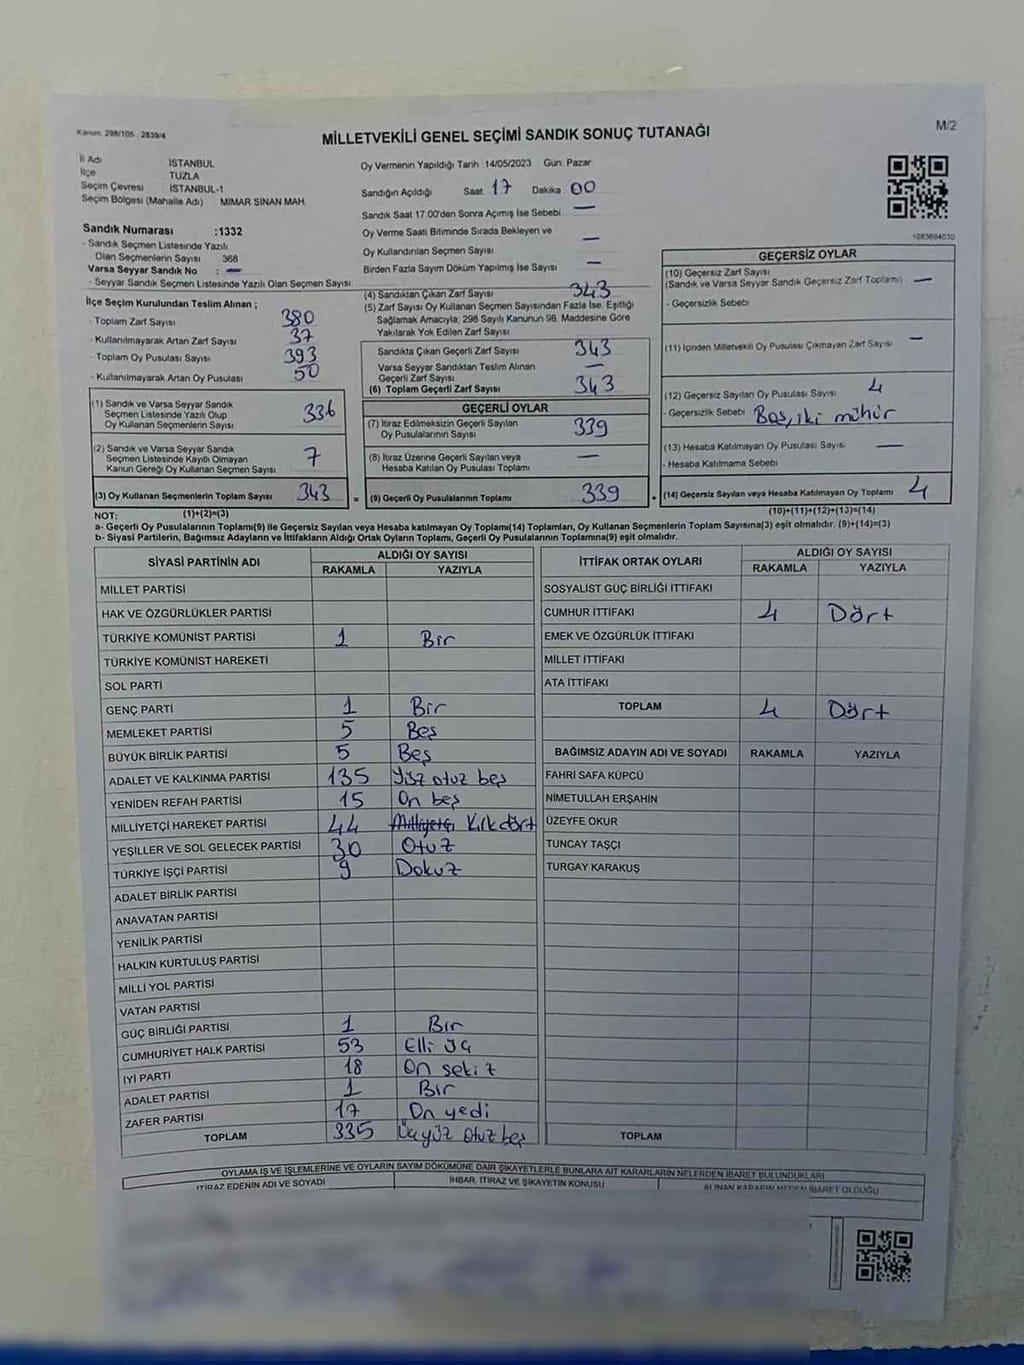 Kanun: 298/105 , 2839/4
M/2
MİLLETVEKİLİ GENEL SEÇİMİ SANDIK SONUÇ TUTANAĞI
İl Adı İSTANBUL
İlçe TUZLA
Seçim Çevresi İSTANBUL-1
Seçim Bölgesi (Mahalle Adı) MİMAR SİNAN MAH.
Oy Vermenin Yapıldığı Tarih 14/05/2023 Gün: Pazar
Sandığın Açıldığı Saat 17 Dakika 00
Sandık Saat 17.00'den Sonra Açılmış İse Sebebi —
Oy Verme Saati Bitiminde Sırada Bekleyen ve
Oy Kullandırılan Seçmen Sayısı —
Birden Fazla Sayım Döküm Yapılmış İse Sayısı —
Sandık Numarası :1332
- Sandık Seçmen Listesinde Yazılı
Olan Seçmenlerin Sayısı 368
Varsa Seyyar Sandık No : —
- Seyyar Sandık Seçmen Listesinde Yazılı Olan Seçmen Sayısı
İlçe Seçim Kurulundan Teslim Alınan ;
- Toplam Zarf Sayısı 380
- Kullanılmayarak Artan Zarf Sayısı 37
- Toplam Oy Pusulası Sayısı 393
- Kullanılmayarak Artan Oy Pusulası 50
(1) Sandık ve Varsa Seyyar Sandık
Seçmen Listesinde Yazılı Olup
Oy Kullanan Seçmenlerin Sayısı 336
(2) Sandık ve Varsa Seyyar Sandık
Seçmen Listesinde Kayıtlı Olmayan
Kanun Gereği Oy Kullanan Seçmen Sayısı 7
(3) Oy Kullanan Seçmenlerin Toplam Sayısı 343
(4) Sandıktan Çıkan Zarf Sayısı 343
(5) Zarf Sayısı Oy Kullanan Seçmen Sayısından Fazla İse, Eşitliği
Sağlamak Amacıyla; 298 Sayılı Kanunun 98. Maddesine Göre
Yakılarak Yok Edilen Zarf Sayısı
Sandıkta Çıkan Geçerli Zarf Sayısı 343
Varsa Seyyar Sandıktan Teslim Alınan
Geçerli Zarf Sayısı —
(6) Toplam Geçerli Zarf Sayısı 343
GEÇERLİ OYLAR
(7) İtiraz Edilmeksizin Geçerli Sayılan
Oy Pusulalarının Sayısı 339
(8) İtiraz Üzerine Geçerli Sayılan veya
Hesaba Katılan Oy Pusulası Toplamı —
= (9) Geçerli Oy Pusulalarının Toplamı 339 +
GEÇERSİZ OYLAR
(10) Geçersiz Zarf Sayısı
(Sandık ve Varsa Seyyar Sandık Geçersiz Zarf Toplamı) —
- Geçersizlik Sebebi
(11) İçinden Milletvekili Oy Pusulası Çıkmayan Zarf Sayısı —
(12) Geçersiz Sayılan Oy Pusulası Sayısı 4
- Geçersizlik Sebebi Boş, iki mühür
(13) Hesaba Katılmayan Oy Pusulası Sayısı —
- Hesaba Katılmama Sebebi
(14) Geçersiz Sayılan veya Hesaba Katılmayan Oy Toplamı 4
NOT: (1)+(2)=(3) (10)+(11)+(12)+(13)=(14)
a- Geçerli Oy Pusulalarının Toplamı(9) ile Geçersiz Sayılan veya Hesaba katılmayan Oy Toplamı(14) Toplamları, Oy Kullanan Seçmenlerin Toplam Sayısına(3) eşit olmalıdır. (9)+(14)=(3)
b- Siyasi Partilerin, Bağımsız Adayların ve İttifakların Aldığı Ortak Oyların Toplamı, Geçerli Oy Pusulalarının Toplamına(9) eşit olmalıdır.
SİYASİ PARTİNİN ADI ALDIĞI OY SAYISI
RAKAMLA YAZIYLA
MİLLET PARTİSİ
HAK VE ÖZGÜRLÜKLER PARTİSİ
TÜRKİYE KOMÜNİST PARTİSİ 1 Bir
TÜRKİYE KOMÜNİST HAREKETİ
SOL PARTİ
GENÇ PARTİ 1 Bir
MEMLEKET PARTİSİ 5 Beş
BÜYÜK BİRLİK PARTİSİ 5 Beş
ADALET VE KALKINMA PARTİSİ 135 Yüz otuz beş
YENİDEN REFAH PARTİSİ 15 On beş
MİLLİYETÇİ HAREKET PARTİSİ 44 Milliyetçi Kırkdört
YEŞİLLER VE SOL GELECEK PARTİSİ 30 Otuz
TÜRKİYE İŞÇİ PARTİSİ 9 Dokuz
ADALET BİRLİK PARTİSİ
ANAVATAN PARTİSİ
YENİLİK PARTİSİ
HALKIN KURTULUŞ PARTİSİ
MİLLİ YOL PARTİSİ
VATAN PARTİSİ
GÜÇ BİRLİĞİ PARTİSİ 1 Bir
CUMHURİYET HALK PARTİSİ 53 Elli üç
İYİ PARTİ 18 On sekiz
ADALET PARTİSİ 1 Bir
ZAFER PARTİSİ 17 On yedi
TOPLAM 335 Üçyüz otuz beş
İTTİFAK ORTAK OYLARI ALDIĞI OY SAYISI
RAKAMLA YAZIYLA
SOSYALİST GÜÇ BİRLİĞİ İTTİFAKI
CUMHUR İTTİFAKI 4 Dört
EMEK VE ÖZGÜRLÜK İTTİFAKI
MİLLET İTTİFAKI
ATA İTTİFAKI
TOPLAM 4 Dört
BAĞIMSIZ ADAYIN ADI VE SOYADI RAKAMLA YAZIYLA
FAHRİ SAFA KÜPCÜ
NİMETULLAH ERŞAHİN
ÜZEYFE OKUR
TUNCAY TAŞÇI
TURGAY KARAKUŞ
TOPLAM
OYLAMA İŞ VE İŞLEMLERİNE VE OYLARIN SAYIM DÖKÜMÜNE DAİR ŞİKAYETLERLE BUNLARA AİT KARARLARIN NELERDEN İBARET BULUNDUKLARI
İTİRAZ EDENİN ADI VE SOYADI İHBAR, İTİRAZ VE ŞİKAYETİN KONUSU ALINAN KARARIN NEDEN İBARET OLDUĞU